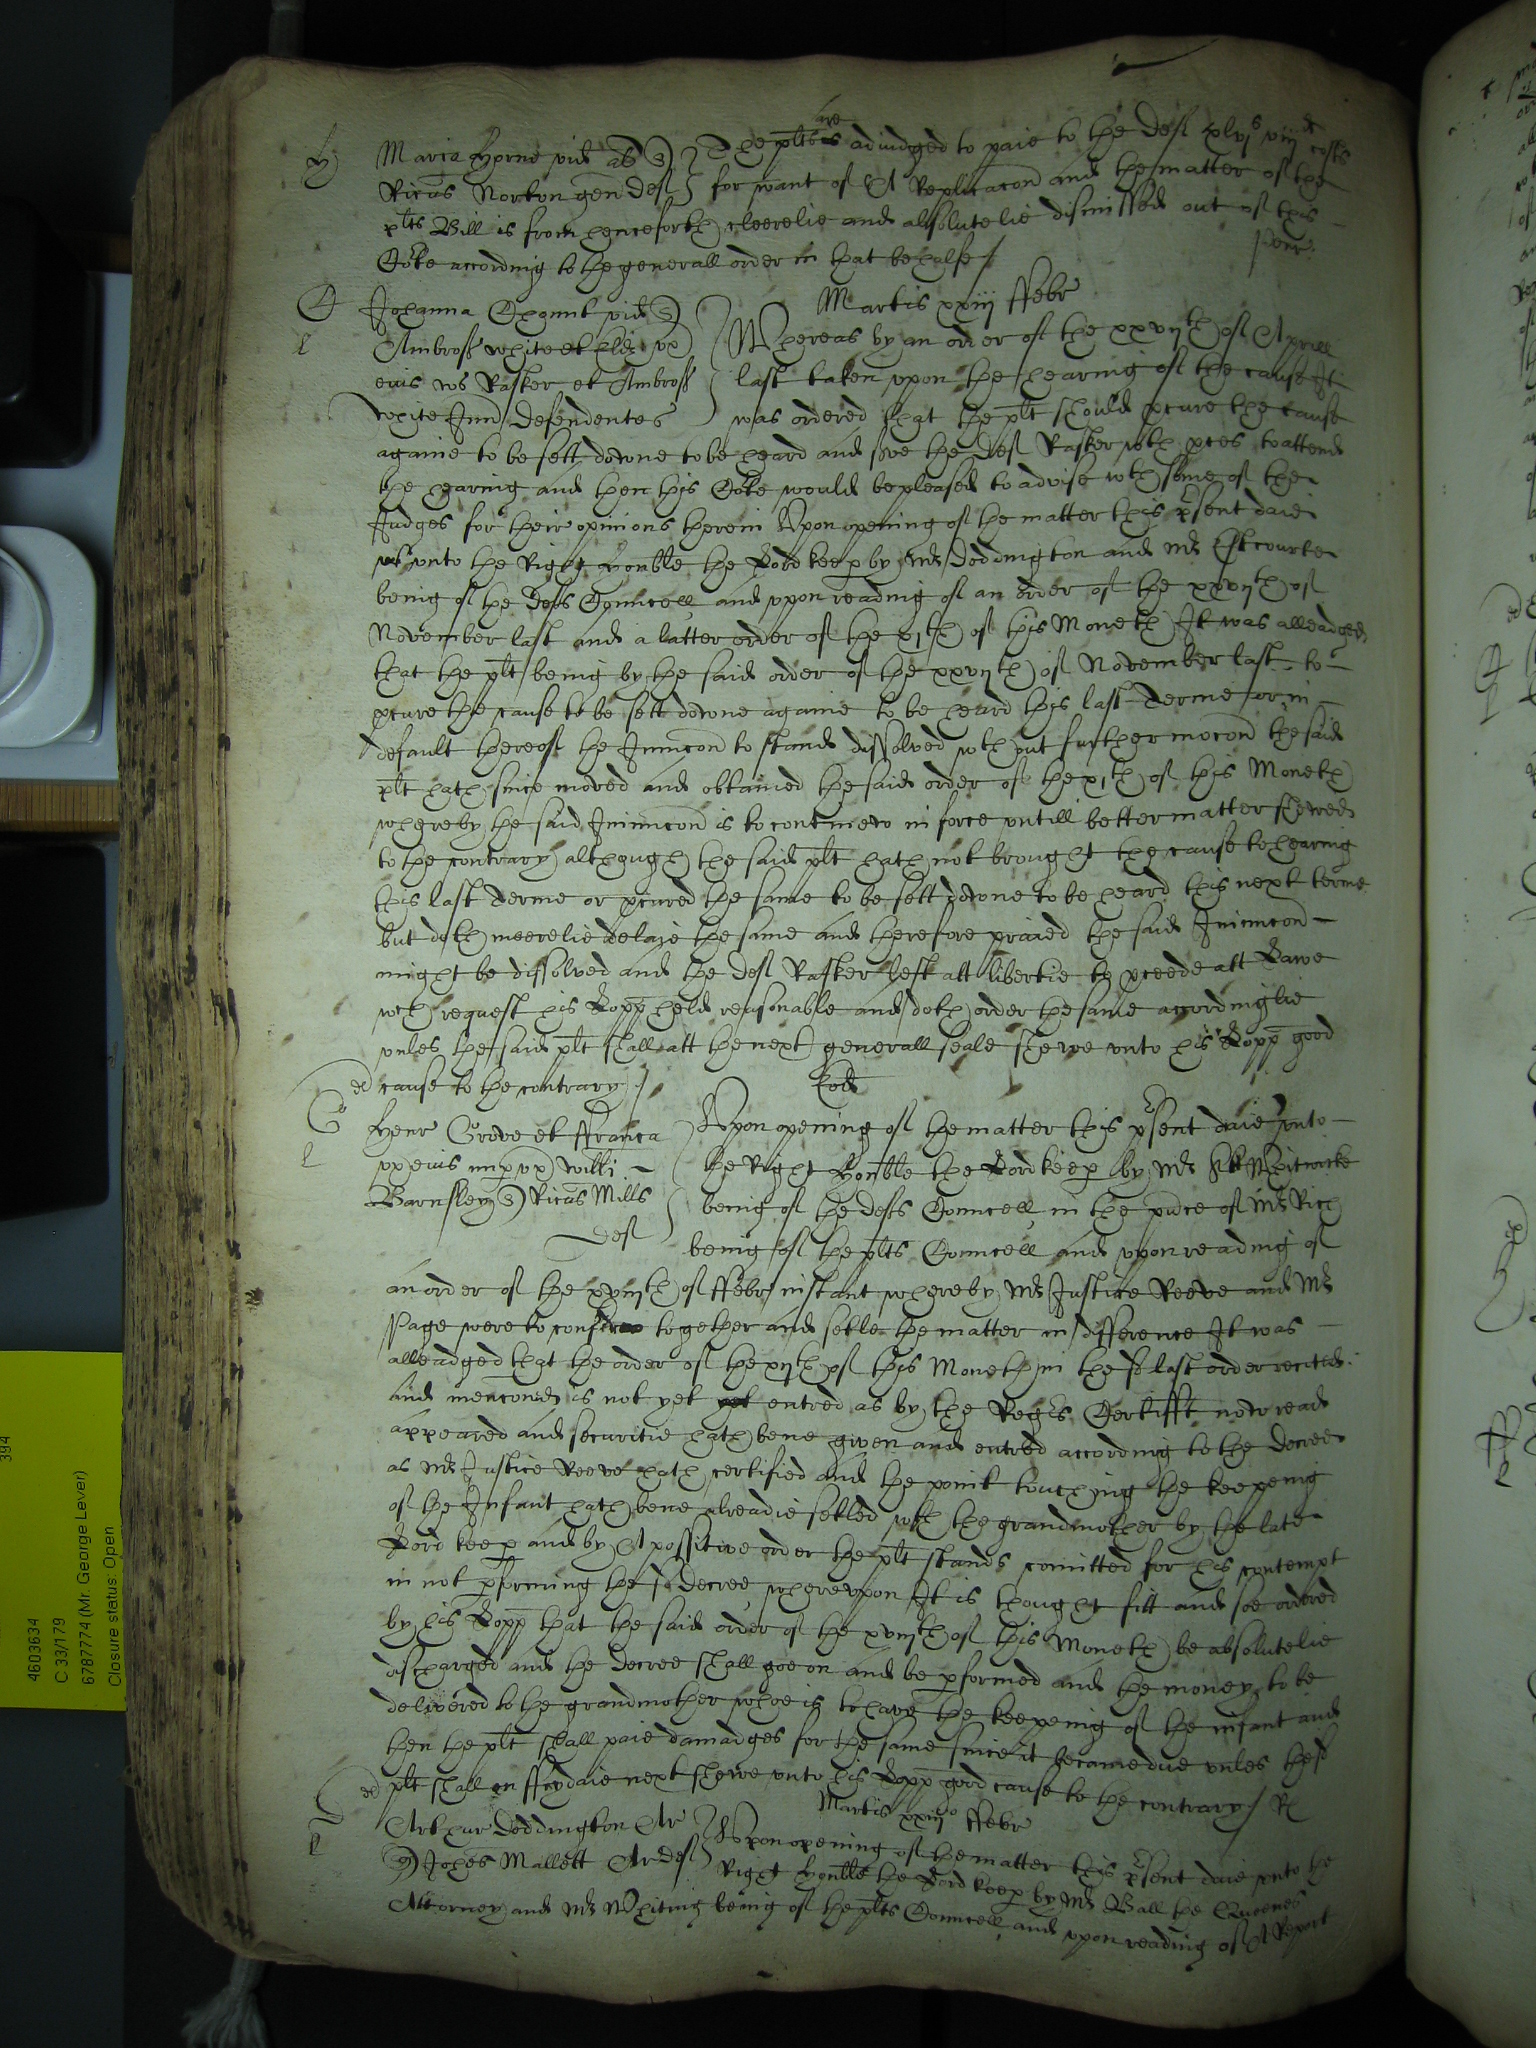 H
Maria Hyrne vid ad s) The plts are adiudged to paie to the def xlvjs viijd costs
Ricus Norton gen def for want of A Replicacon and the matter of the
plts Bill is from henceforth cleerelie and absolutelie dismissed out of this
Cote according to the generall order in that behalfe /
Martis xxiij ffebr
Johanna vid s) Whereas by an order of the xxvijth of Aprill
Ambross white et ux last taken upon the hearing of the cause It
eius Rasker et Ambross was ordered that the plt should pcure the cause
white Jun defendentes
againe to be sett downe to be heard and s've the def Rasker wth pces to attend
the hearing and then this Cote would be pleased to advise wth some of the
Judges for their opinions therein Upon opening of the matter this p'sent daie
unto the Right honble the Lord keep by Mr Doddington and Mr Estcourte
being of the defts Councell and upon reading of an order of the xxvijth of
November last and a latter order of the xjth of this Moneth It was alleadged
that the plt being by the said order of the xxvijth of November last to
pcure the cause to be sett downe againe to be heard this last Terme or in
default thereof the Iniuncon to stand dissolved wthout further mocon the said
plt hath since moved and obtained the said order of the xjth of this Moneth
whereby the said Iniuncon is to continew in force untill better matter shewed
to the contrary although the said plt hath not brought the cause to hearing
this last Terme or pcured the same to be sett downe to be heard this next terme
but doth meerelie delaie the same and therefore praied the said Iniuncon
might be dissolved and the def Rasker left att libertie to pceede att Lawe
wch request his Lopp held reasonable and doth order the same accordinglie
unles the said plt shall att the next generall seale shewe unto his Lopp good
cause to the contrary /
Eod
Henr Grove et ffranca Upon opening of the matter this p'sent daie unto
ux eius nup ux Willi the Right honble the Lord keep by Mr Whitwicke
Barnsley s) Ricus Mills being of the defts Councell in the pnce of Mr Rich
def being of the plts Councell and upon reading of
an order of the xviijth of ffebr instant whereby Mr Justice Reeve and Mr
Page were to conferr together and setle the matter in difference It was
alleadged that the order of the xijth of this Moneth in the sd last order recited
and menconed is not yet entred as by the Regrs Certifft now read
appeared and securitie hath bene given and entred according to the decree
as Mr Justice Reeve hath certified and the point touching the keeping
of the Infant hath bene alreadie setled wth the grandmother by the late
Lord keep and by A possitive order the plt stands comitted for his contempt
in not pforming the sd decree whereupon It is thought fitt and soe ordered
by his Lopp that the said order of the xviijth of this Moneth be absolutelie
discharged and the decree shall goe on and be pformed and the money to be
delivered to the grandmother whoe is to have the keeping of the infant and
then the plt shall paie damadges for the same since it became due unles the sd
plt shall on ffrydaie next shewe unto his Lopp good cause to the contrary /
Martis xxiijo ffebr
Arthur Doddington Ar Upon opening of the matter this p'sent daie unto the
s) Johes Mallett Ar def Right honble the Lord keep by Mr Ball the Queenes
Attorney and Mr Whiting being of the plts Councell and upon reading of A Report
394
4603634
C 33/179
6787774 (Mr. George Lever)
Closure status: Open